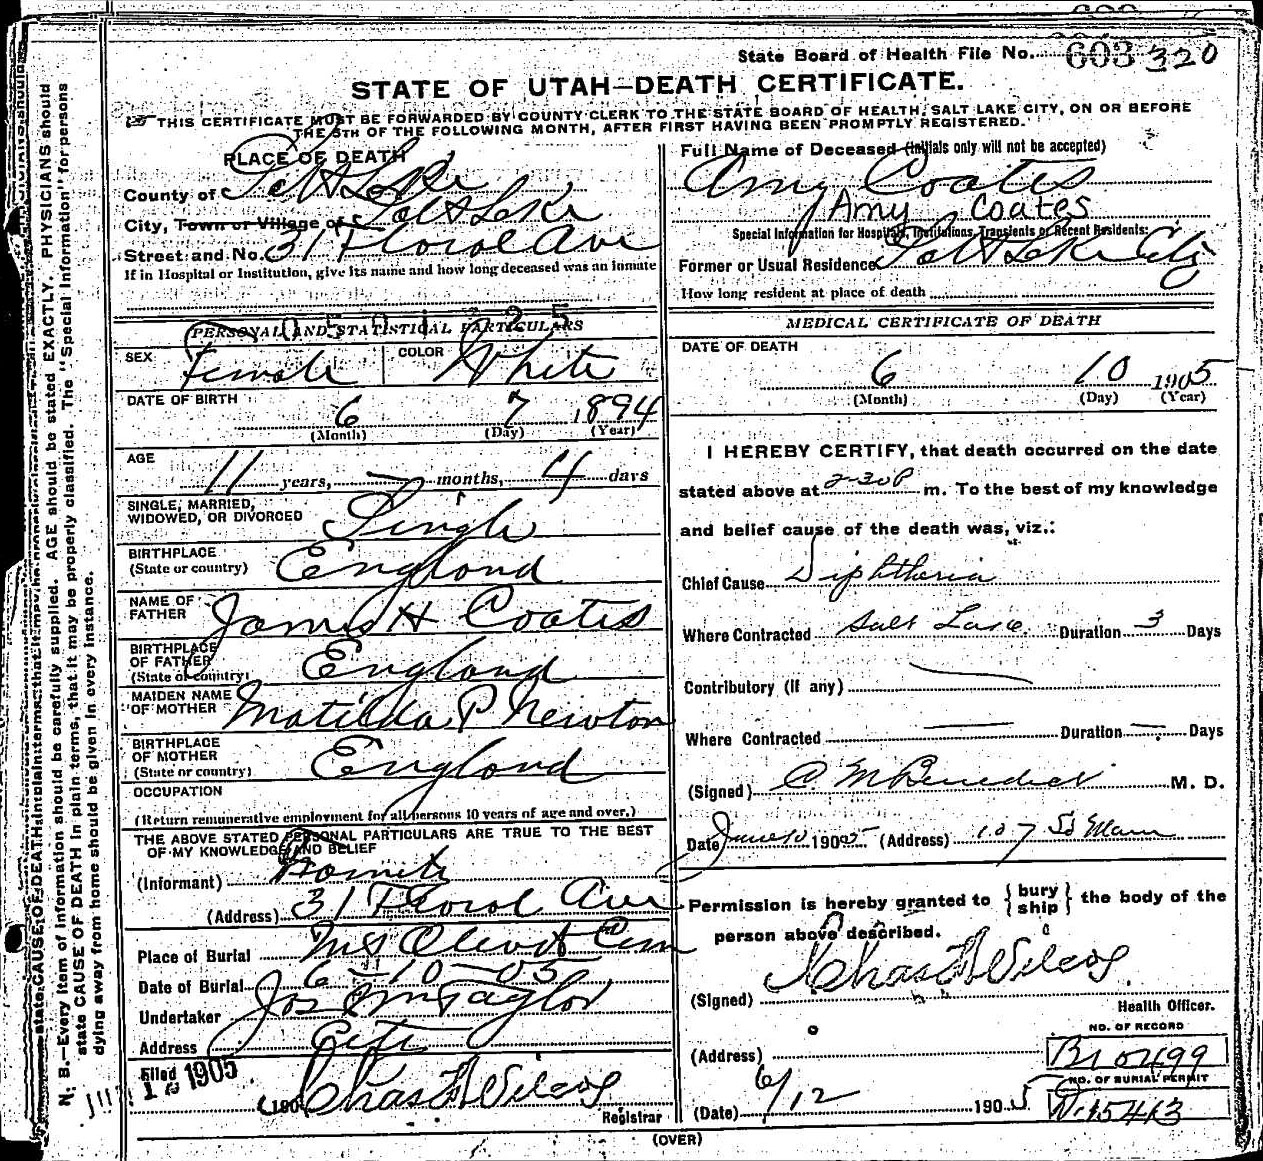 State Board of Health File No. 603 320
STATE OF UTAH—DEATH CERTIFICATE.
THIS CERTIFICATE MUST BE FORWARDED BY COUNTY CLERK TO THE STATE BOARD OF HEALTH, SALT LAKE CITY, ON OR BEFORE
THE 5TH OF THE FOLLOWING MONTH, AFTER FIRST HAVING BEEN PROMPTLY REGISTERED.
PLACE OF DEATH
County of Salt Lake
City, Town or Village of Salt Lake
Street and No. 31 Floral Ave
If in Hospital or Institution, give its name and how long deceased was an inmate
0501225
PERSONAL AND STATISTICAL PARTICULARS
SEX Female COLOR White
DATE OF BIRTH
6 7 1894
(Month) (Day) (Year)
AGE
11 years, — months, 4 days
SINGLE, MARRIED,
WIDOWED, OR DIVORCED Single
BIRTHPLACE
(State or country) England
NAME OF
FATHER James H Coates
BIRTHPLACE
OF FATHER
(State or country) England
MAIDEN NAME
OF MOTHER Matilda P Newton
BIRTHPLACE
OF MOTHER
(State or country) England
OCCUPATION
(Return remunerative employment for all persons 10 years of age and over.)
THE ABOVE STATED PERSONAL PARTICULARS ARE TRUE TO THE BEST
OF MY KNOWLEDGE AND BELIEF
(Informant)
(Address) 31 Floral Ave
Place of Burial Mt Olivet Cem
Date of Burial 6-10-05
Undertaker Jos E M Taylor
Address City
Filed 1905
190 Chas F Wilcox
Registrar
Full Name of Deceased (Initials only will not be accepted)
Amy Coates
Amy Coates
Special Information for Hospitals, Institutions, Transients or Recent Residents:
Former or Usual Residence Salt Lake City
How long resident at place of death
MEDICAL CERTIFICATE OF DEATH
DATE OF DEATH
6 10 1905
(Month) (Day) (Year)
I HEREBY CERTIFY, that death occurred on the date
stated above at 2-30 P m. To the best of my knowledge
and belief cause of the death was, viz.:
Chief Cause Diphtheria
Where Contracted Salt Lake Duration 3 Days
Contributory (if any) —
Where Contracted — Duration — Days
(Signed) C. M Benedict M. D.
Date June 10 1905 (Address) 107 So Main
Permission is hereby granted to {bury ship} the body of the
person above described.
(Signed) Chas F Wilcox
Health Officer.
(Address)
NO. OF RECORD
B10499
NO. OF BURIAL PERMIT
(Date) 6/12 1905 N-15413
(OVER)
N. B.—Every item of information should be carefully supplied. AGE should be stated EXACTLY. PHYSICIANS should
state CAUSE OF DEATH in plain terms, that it may be properly classified. The "Special Information" for persons
dying away from home should be given in every instance.